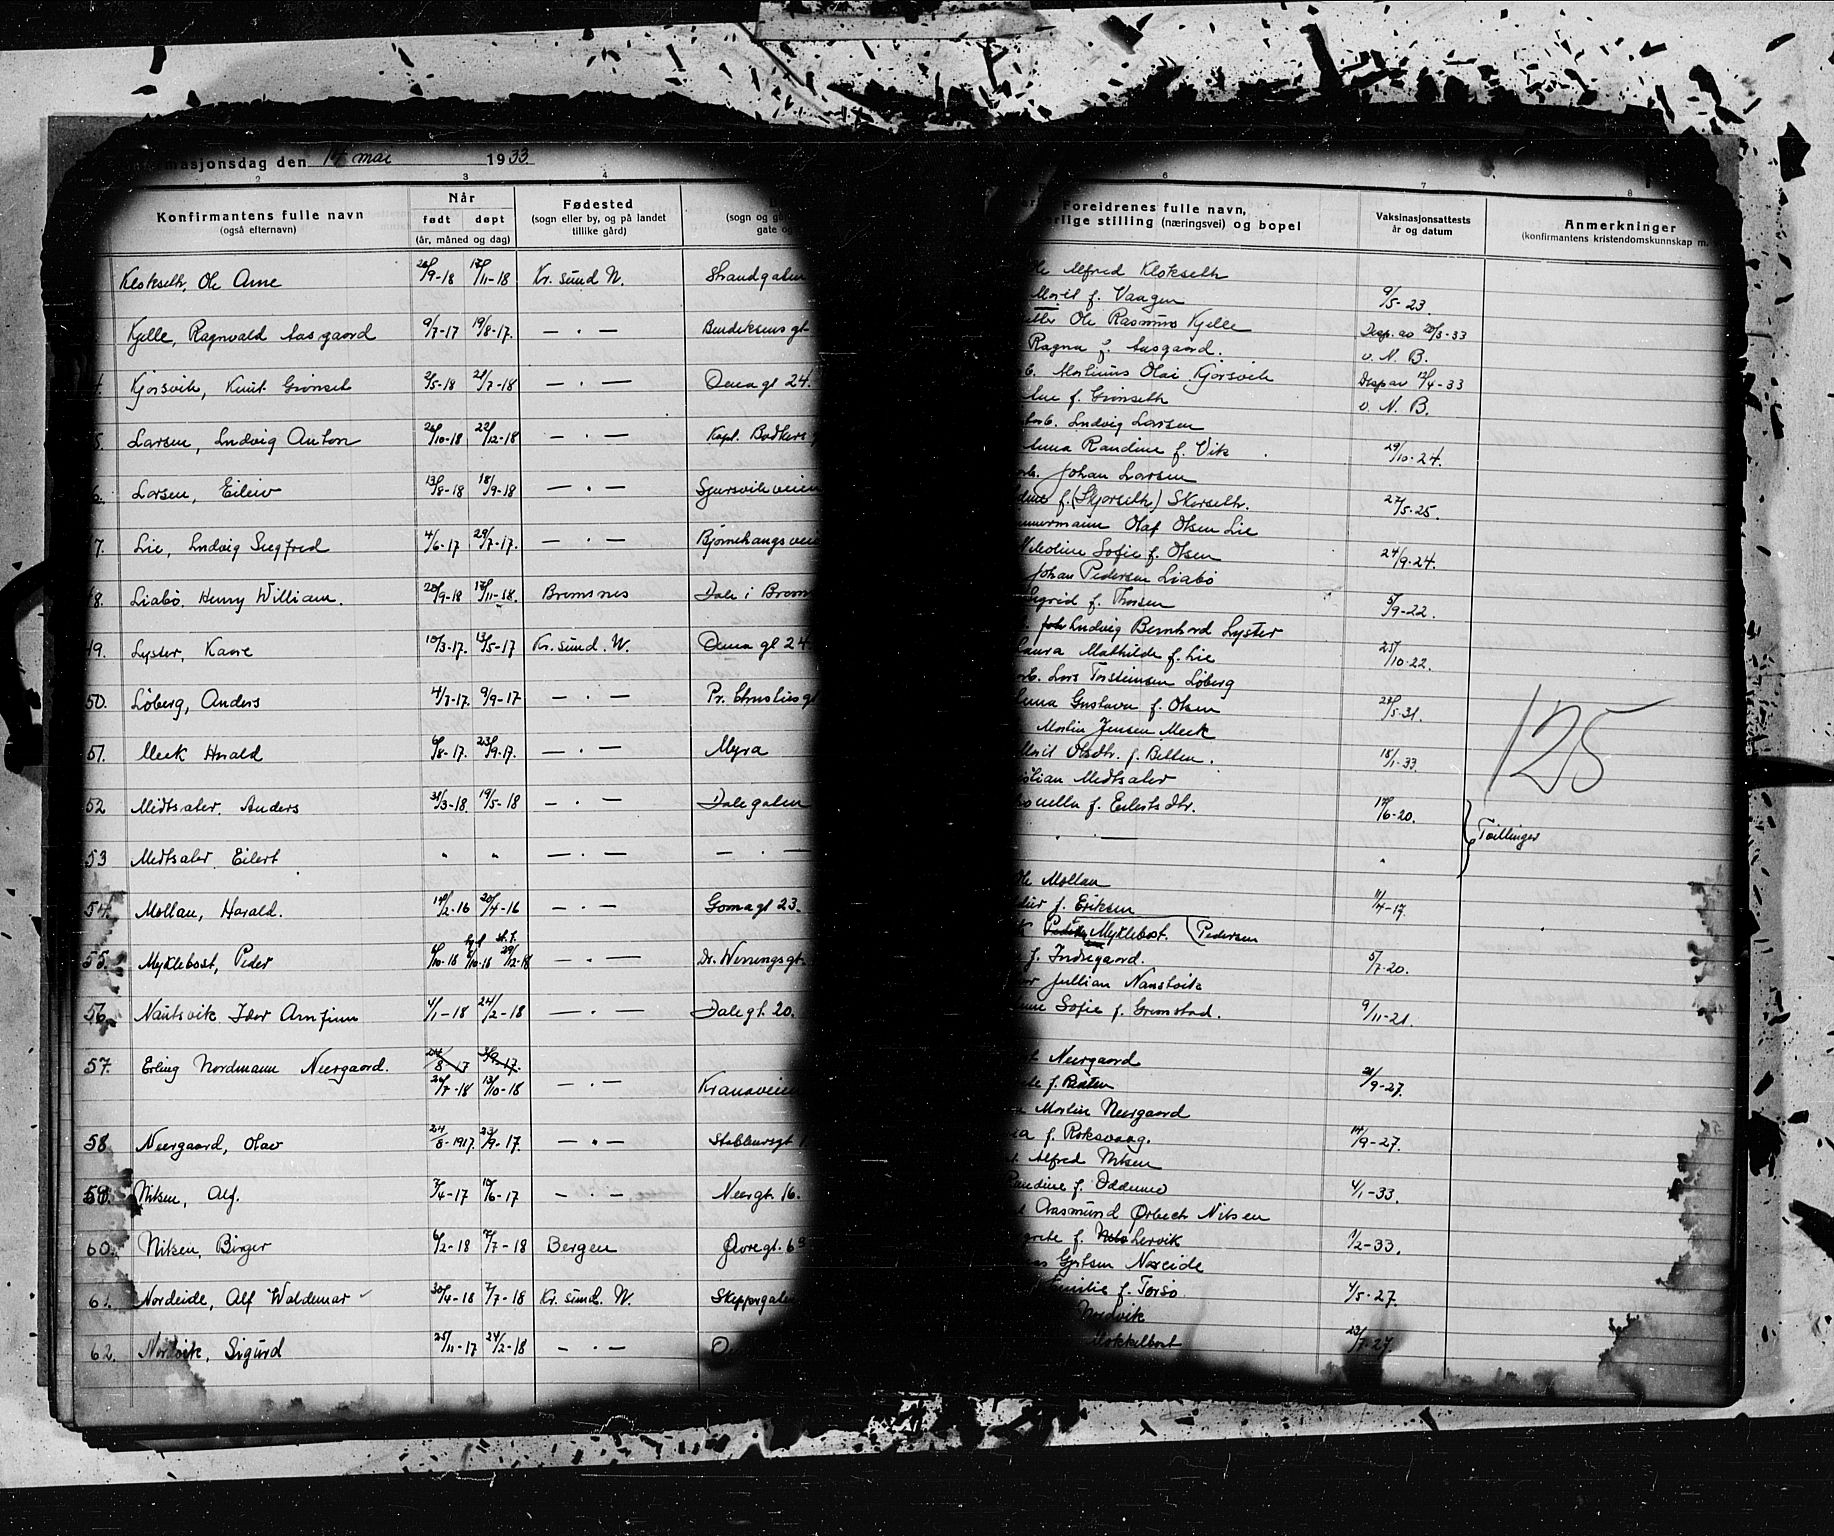 masjonsdag den 14 mai 1933
2 3 4 6 7 8
Konfirmantens fulle navn (også efternavn) Når født døpt (år, måned og dag) Fødested (sogn eller by, og på landet tillike gård) (sogn og gate og Foreldrenes fulle navn, erlige stilling (næringsvei) og bopel Vaksinasjonsattests år og datum Anmerkninger (konfirmantens kristendomskunnskap m.
Klokseth, Ole Arne /9-18 /11-18 Kr. sund N. Strandgaten Ole Alfred Klokseth
Marit f. Vaagen 9/5-23
Kjelle, Ragnvald Aasgaard 9/7-17 19/8-17. — · — Bendiksens gt Ole Rasmus Kjelle Disp. av 20/3-33
Ragna f. Aasgaard. v. N. B.
4. Kjørsvik, Knut Grønseth 2/5-18 21/7-18 — · — Dena gt 24. Martinus Olai Kjørsvik Disp av 12/4-33
f. Grønseth v. N. B.
5. Larsen, Ludvig Anton /10-18 22/12-18 — · — Kapt. Bødkers Ludvig Larsen
Anna Randine f. Vik 29/10-24.
6. Larsen, Eileiv 13/8-18 18/9-18 — · — Sjursvikveien Johan Larsen
f. (Skjorseth) Skorseth. 27/5-25.
7. Lie, Ludvig Siegfred 4/6-17 29/7-17. — · — Bjørnehaugsveie mmermann Olaf Olsen Lie
Nikoline Sofie f. Olsen 24/9-24.
48. Liabø, Henry William. /9-18 17/11-18. Bremsnes Dale i Brem Johan Pedersen Liabø
Sigrid f. Thorsen 5/9-22
49. Lyster, Kaare 10/3-17. 13/5-17 Kr. sund. N. Dena gt 24. Ludvig Bernhard Lyster
Laura Mathilde f. Lie 25/10-22.
50. Løberg, Anders 4/7-17. 9/9-17 — · — Pr. Christies gt Lars Torsteinsen Løberg
Gustava f. Olsen 28/5-31.
51. Meek Harald /8-17. 23/9-17. — · — Myra Martin Jensen Meek
Marit Olsdtr. f. Betten. 18/1-33.
125
52 Midtsater, Anders 31/3-18 19/5-18 — · — Dalegaten istian Midtsater
f. Eilertsdtr. 17/6-20.
} Tvillinger
53 Midtsater, Eilert " " — · — — · — · — "
54. Mollan, Harald. /2-16 /4-16 — · — Goma gt 23. Ole Mollan
f. Eriksen 1/4-17
55. Myklebost, Peder /10-18 /10-18 29/12-18 — · — Dr. Werrings gt. Myklebost. (Pedersen
f. Indregaard. 5/7-20.
56. Nautsvik Idar Arnfinn 4/1-18 24/2-18 — · — Dale gt. 20. Jullian Nautsvik
Sofie f. Grimstad. 9/11-21.
57. Erling Nordmann Neergaard. 24/8 17 3/9-17. Neergaard
/7-18 13/10-18 — · — Kranaveien f. 21/9-27.
58 Neergaard, Olav 24/8-1917. 23/9-17 — · — Stabbursgt Martin Neergaard
f. Roksvaag. 14/9-27.
59. Nilsen, Alf. 7/4-17 10/6-17 — · — Neergt. 16. Alfred Nilsen
Randine f. 4/1-33.
60. Nilsen, Birger 6/2-18 7/7-18 Bergen Øvregt. 6 Aasmund Ørbech Nilsen
f. Lervik 1/2-33.
61. Nordeide, Alf Waldemar 30/4-18 7/7-18 Kr. sund. N. Skippergaten Gjertsen Noreide
Emilie f. Torsø 4/5-27.
62. Nordvik, Sigurd 25/11-17 24/2-18 — · — Nordvik
Hokkelbost 23/7-27.